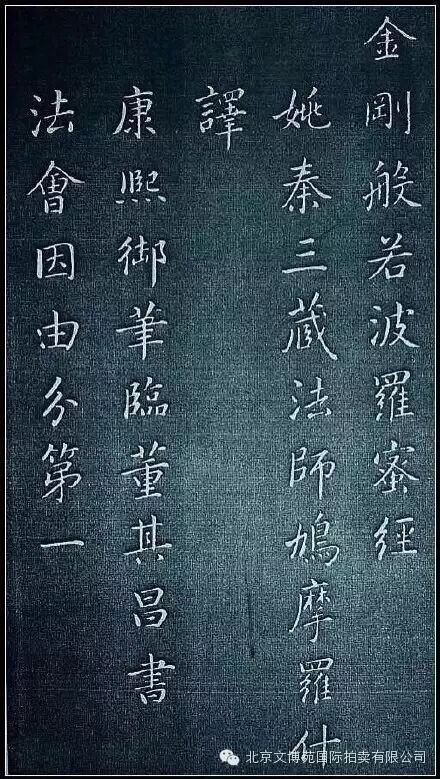 金剛般若波羅蜜經
姚秦三藏法師鳩摩羅什
譯
康熙御筆臨董其昌書
法會因由分第一
北京文博苑国际拍卖有限公司